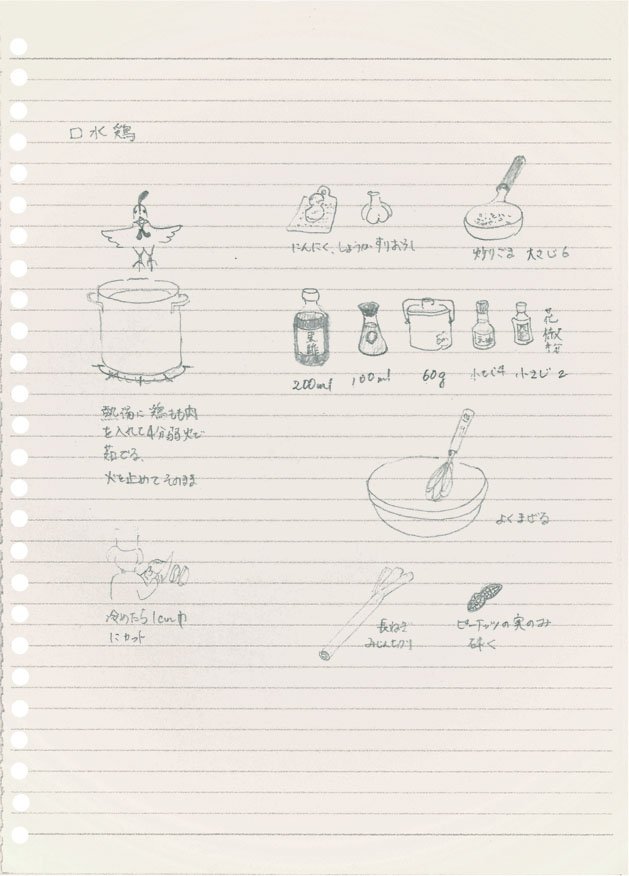 口水鶏
にんにく、しょうが すりおろし
炒りごま 大さじ6
黒酢
花椒粉
200ml
100ml
60g
小さじ4
小さじ2
熱湯に鶏もも肉
を入れて4分弱火で
茹でる。
火を止めてそのまま
よくまぜる
冷めたら1cm巾
にカット
長ねぎ
みじんぎり
ピーナッツの実のみ
砕く